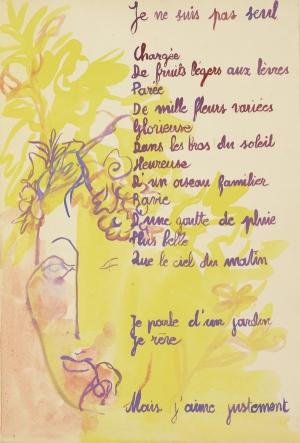 Je ne suis pas seul
Chargée
De fruits légers aux lèvres
Parée
De mille fleurs variées
Glorieuse
Dans les bras du soleil
Heureuse
D'un oiseau familier
Ravie
D'une goutte de pluie
Plus belle
Que le ciel du matin
Je parle d'un jardin
Je rêve
Mais j'aime justement